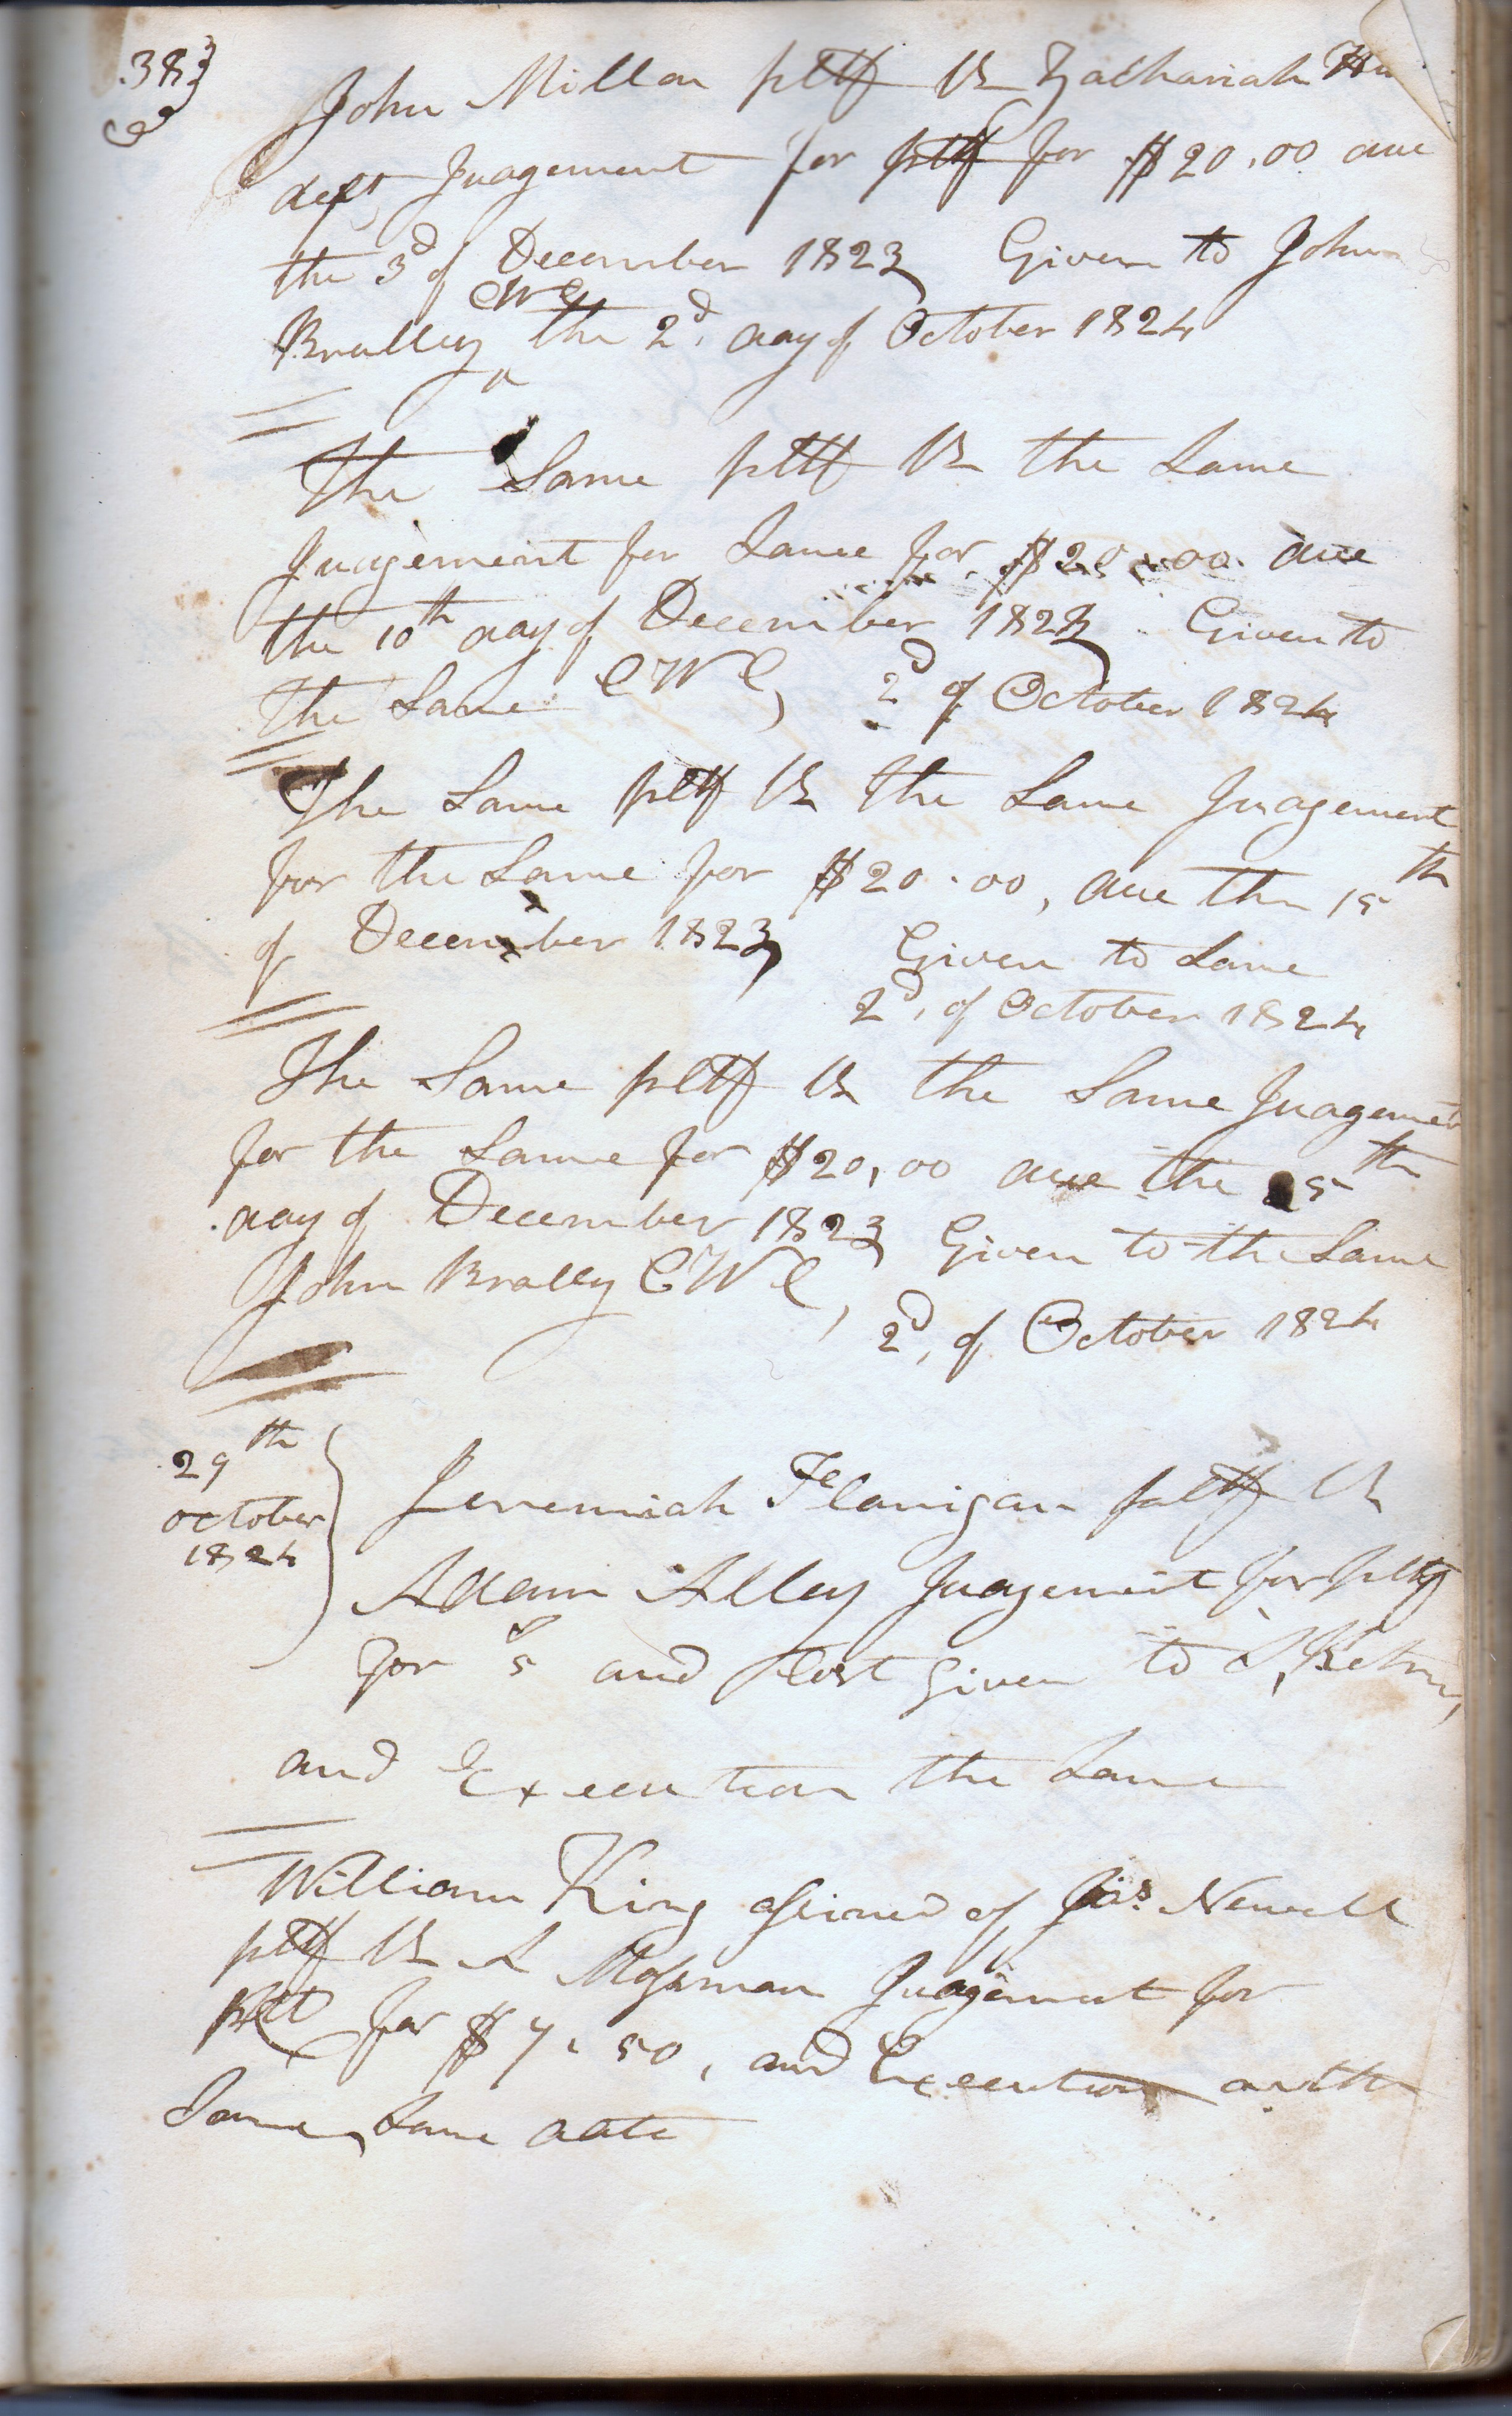 383
John Millar pltff vs Zachariah
deft Judgement for pltff for $20.00 due
the 3d of December 1823 Given to John
CWC
Bralley the 2d day of October 1824
The Same pltff vs the Same
Judgement for Same for $20.00 due
the 10th day of December 1823 Given to
the Same CWC, 2d of October 1824
The Same pltff vs the Same Judgement
for the Same for $20.00, due the 15th
of December 1823 Given to Same
2d, of October 1824
The Same pltff vs the Same Judgement
for the Same for $20,00 due the 25th
day of December 1823 Given to the Same
John Bralley CWC, 2d, of October 1824
29th
October
1824
Jeremiah Flanigan pltff vs
Adam Alley Judgement for pltff
for 5 and Cost Given to
and Execution the Same
William King assined of Jas Newell
pltff vs A Mossman Judgement for
pltt for $7.50, and Execution
Same, Same date